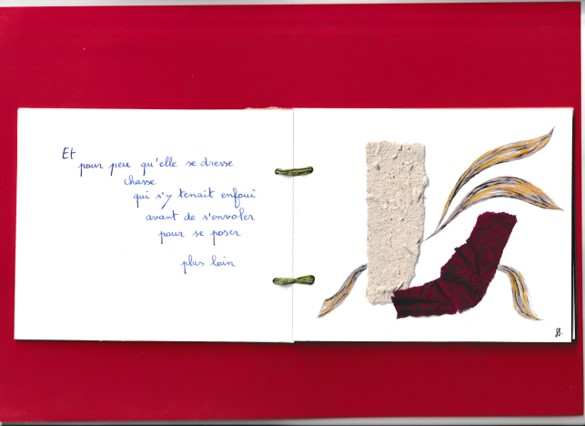 Et
pour peu qu'elle se dresse
chasse
qui s'y tenait enfoui
avant de s'envoler
pour se poser
plus loin